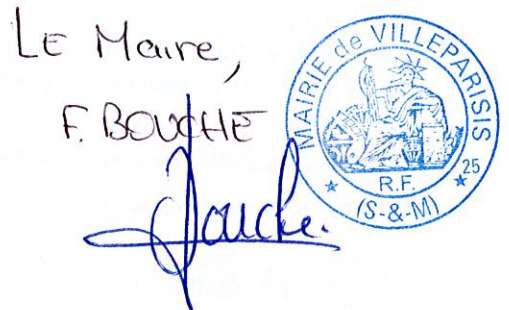 LE Maire,
F. BOUCHE
Bouche.
MAIRIE de VILLEPARISIS
25
R.F.
★ (S-&-M) ★